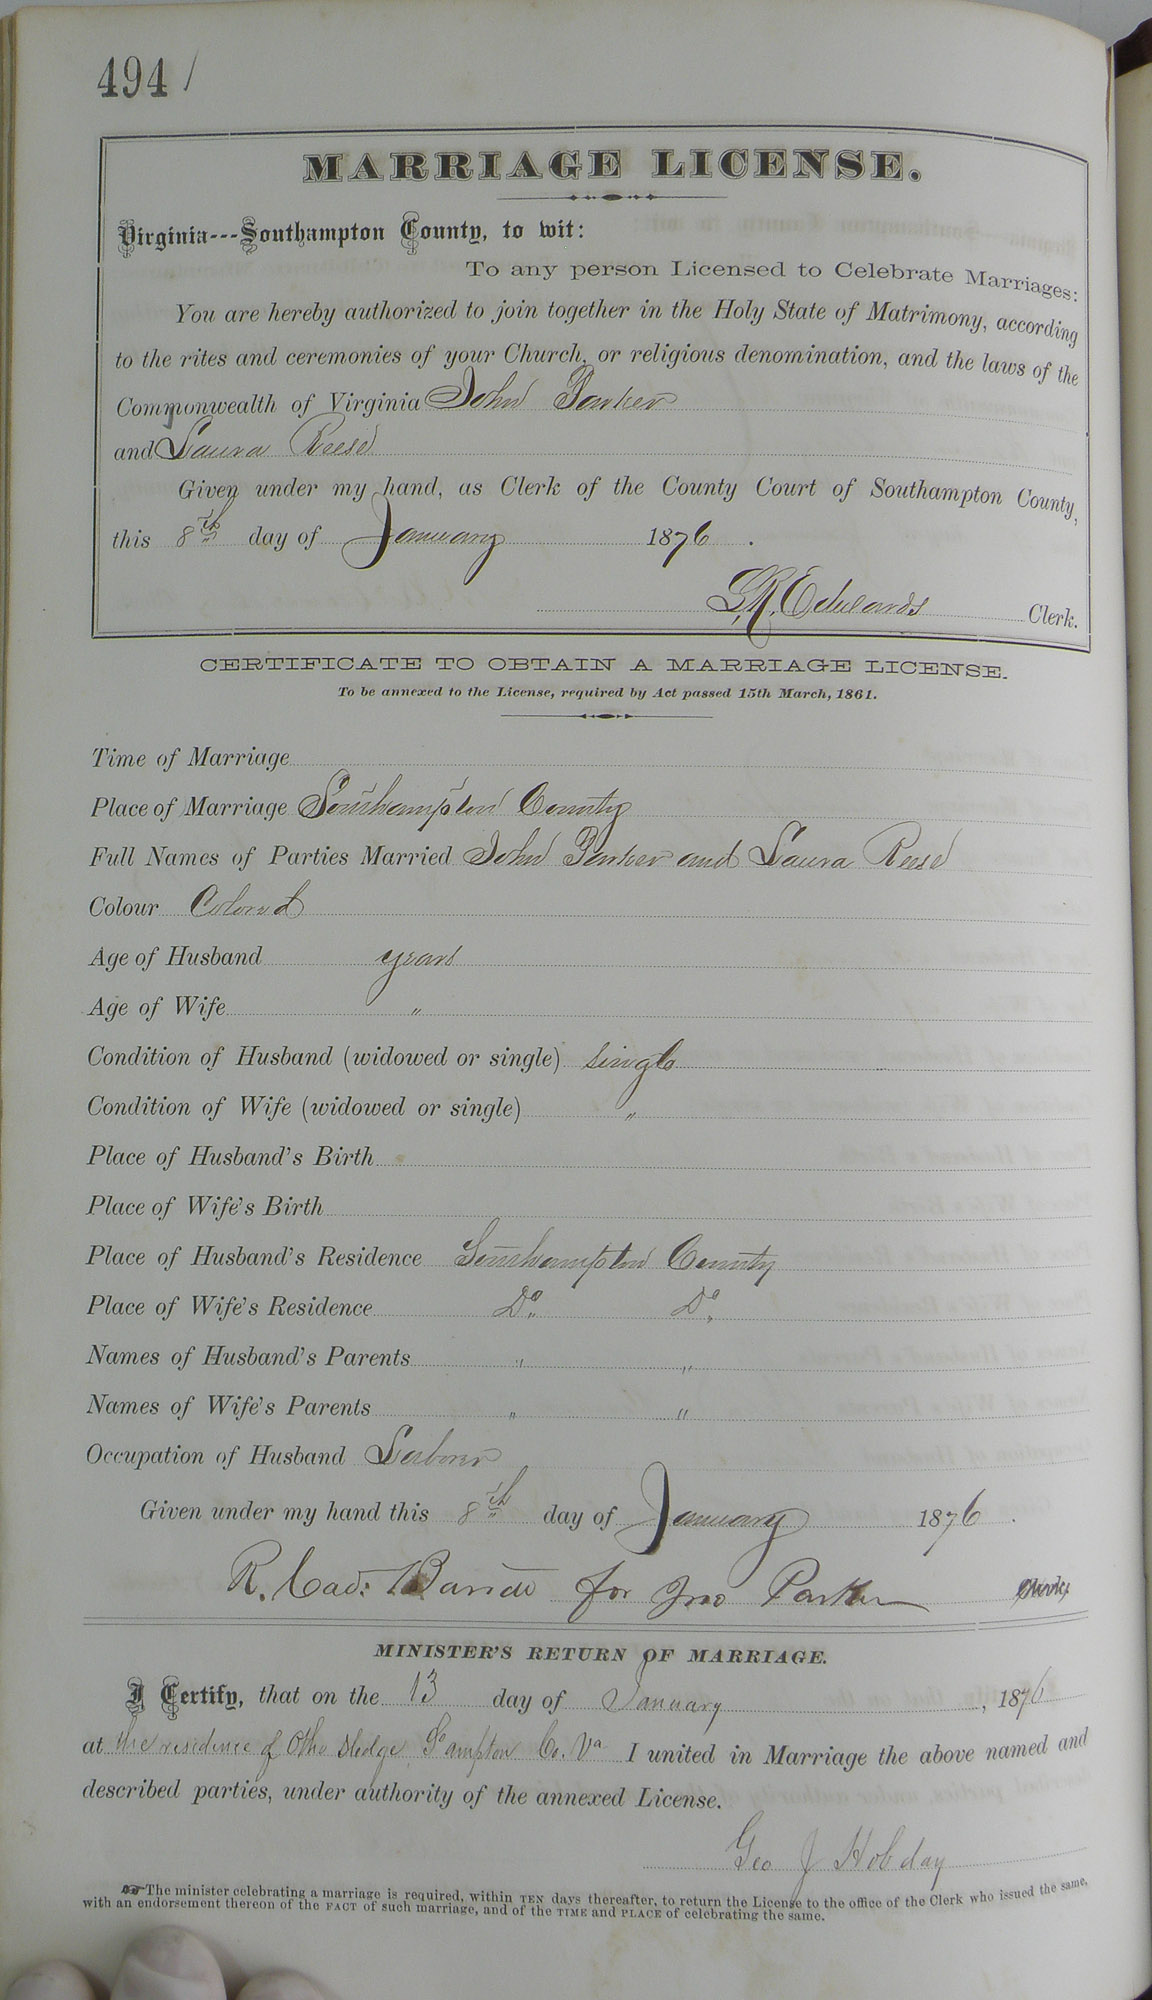 494 /
MARRIAGE LICENSE.
Virginia---Southampton County, to wit:
To any person Licensed to Celebrate Marriages:
You are hereby authorized to join together in the Holy State of Matrimony, according
to the rites and ceremonies of your Church, or religious denomination, and the laws of the
Commonwealth of Virginia John Parker
and Laura Reese
Given under my hand, as Clerk of the County Court of Southampton County,
this 8th day of January 1876.
L.R. Edwards Clerk.
CERTIFICATE TO OBTAIN A MARRIAGE LICENSE.
To be annexed to the License, required by Act passed 15th March, 1861.
Time of Marriage
Place of Marriage Southampton County
Full Names of Parties Married John Parker and Laura Reese
Colour Colored
Age of Husband years
Age of Wife "
Condition of Husband (widowed or single) single
Condition of Wife (widowed or single) "
Place of Husband's Birth
Place of Wife's Birth
Place of Husband's Residence Southampton County
Place of Wife's Residence Do. Do.
Names of Husband's Parents " "
Names of Wife's Parents " "
Occupation of Husband Laborer
Given under my hand this 8th day of January 1876.
R. for Jno Parker Clerk.
MINISTER'S RETURN OF MARRIAGE.
I Certify, that on the 13 day of January, 1876
at the residence of Otho Sledge So ampton Co. Va I united in Marriage the above named and
described parties, under authority of the annexed License.
Geo J Hobday
☞ The minister celebrating a marriage is required, within TEN days thereafter, to return the License to the office of the Clerk who issued the same,
with an endorsement thereon of the FACT of such marriage, and of the TIME and PLACE of celebrating the same.